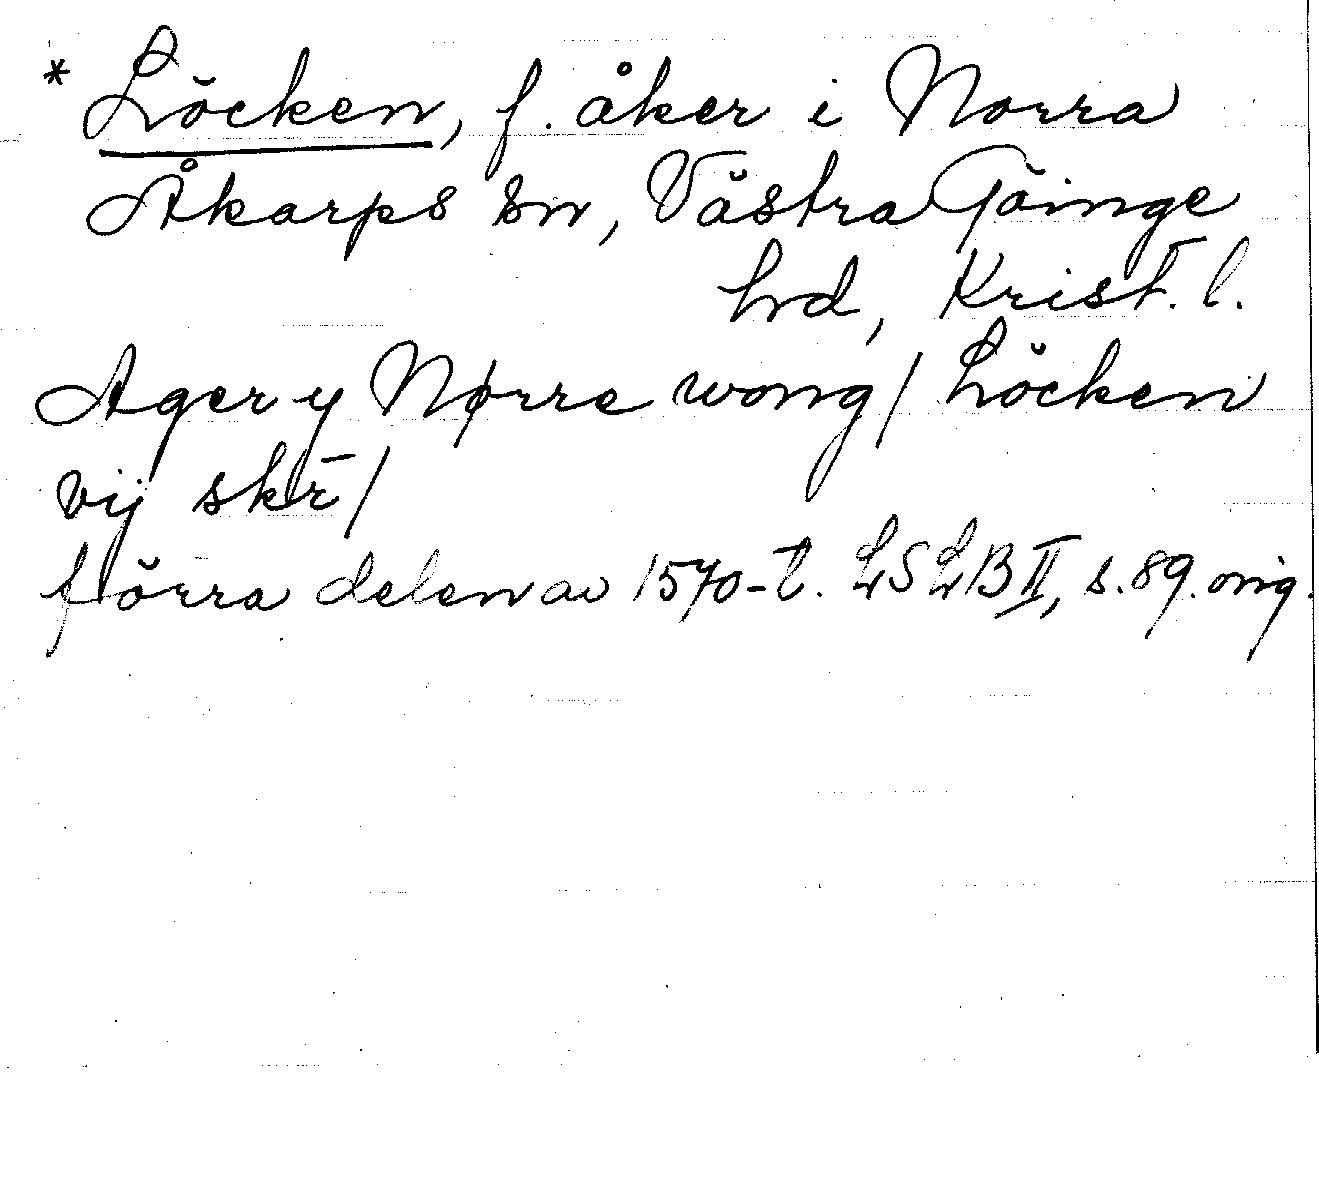 * Löcken, f. åker i Norra
Åkarps sn, Västra Göinge
hd, Krist. l.
Ager y Nørre wong / Löcken
vij skr̄ /
förra delen av 1570-t. LSLB II, s. 89. orig.